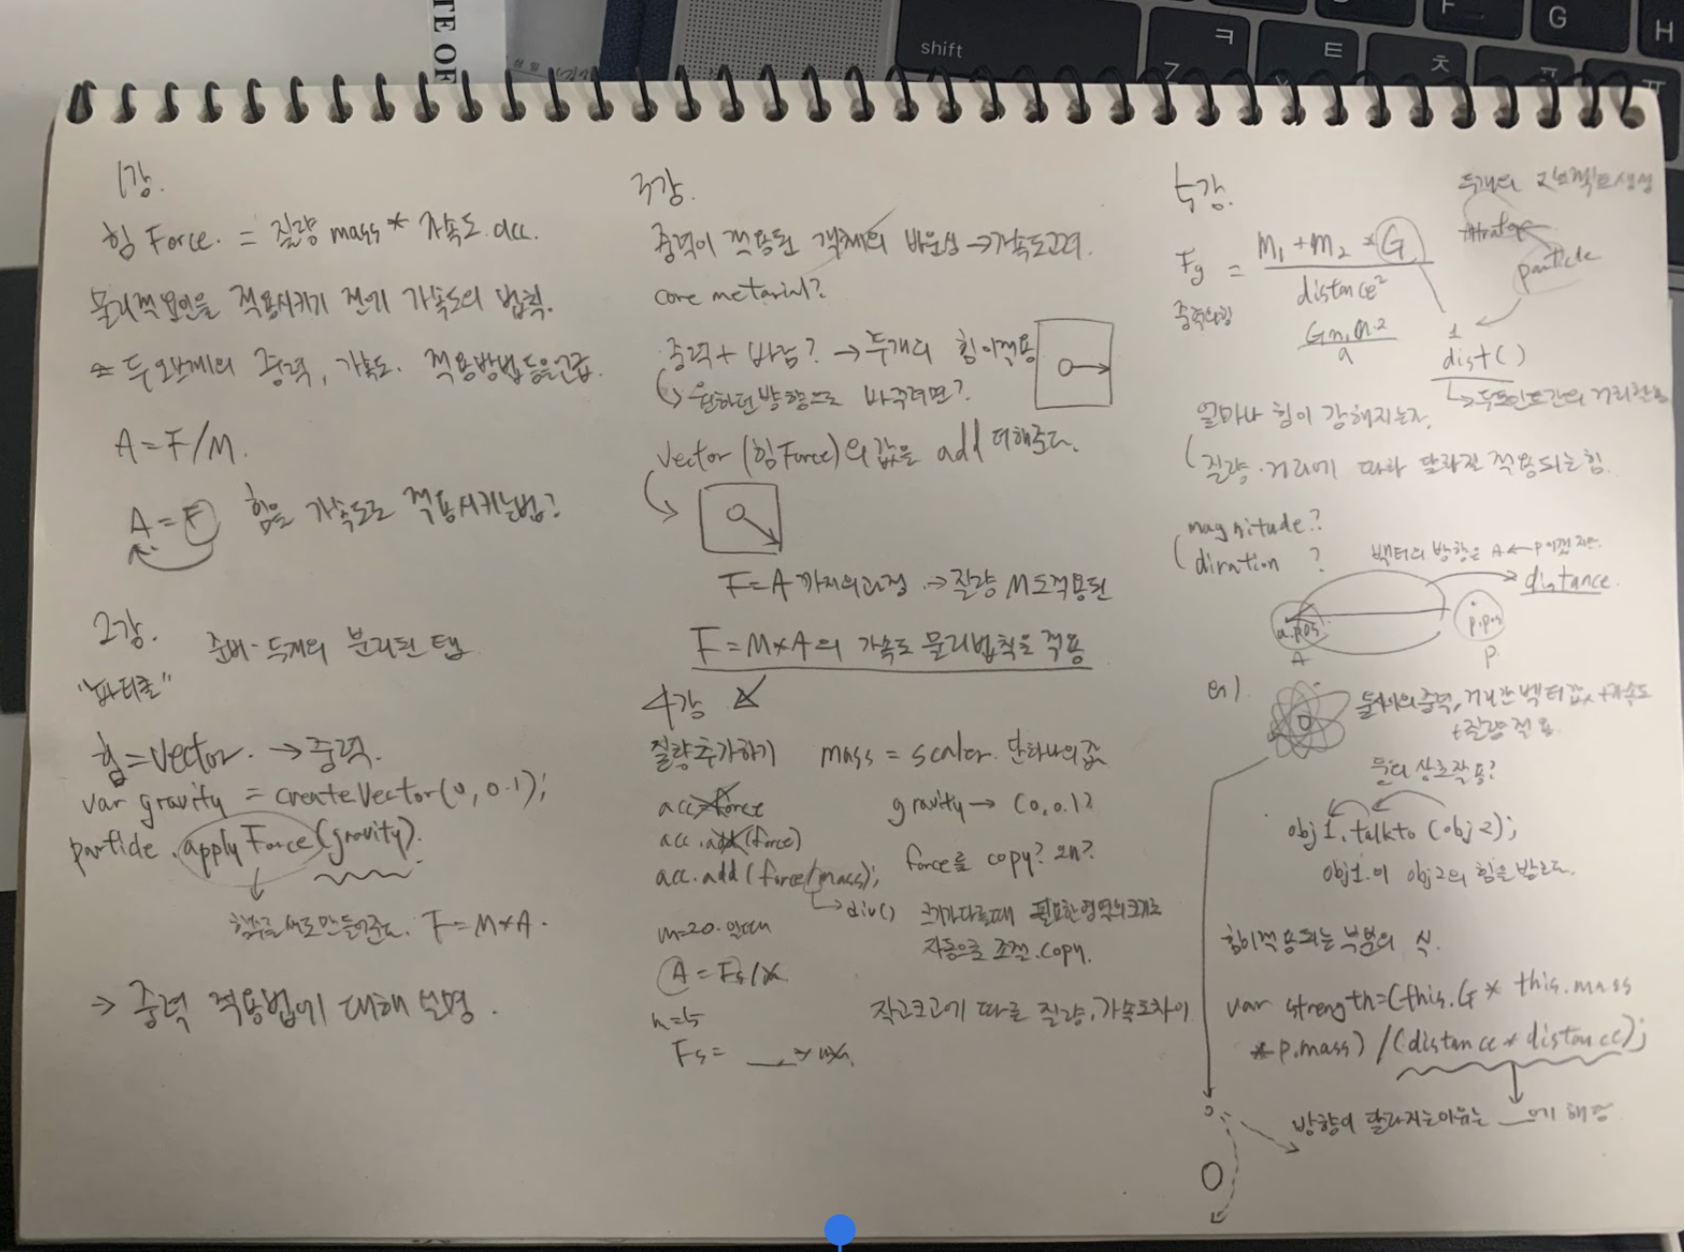 1강.
힘 Force. = 질량 mass * 가속도 acc.
물리적요인을 적용시키기 전에 가속도의 법칙.
두 오브제의 중력, 가속도. 적용방법등을언급.
A = F/M.
A = F 힘을 가속도로 적용시키는법?
2강.
준비- 두개의 분리된 탭
"파티클"
힘 = Vector. → 중력.
var gravity = createVector(0, 0.1);
particle.applyForce(gravity).
함수를 새로만들어준다. F = M*A.
→ 중력 적용법에 대해 설명.
3강.
중력이 적용된 객체의 바운싱 → 가속도고려.
core metarial?
중력 + 바람? → 두개의 힘이적용
원하던방향으로 바꾸려면?
Vector (힘Force)의 값을 add 더해준다.
F = A 까지의과정 → 질량 M도적용된
F = M*A의 가속도 물리법칙을 적용
4강
질량추가하기 mass = scaler. 단하나의값
acc=force
acc.add(force)
acc.add(force/mass);
→ div()
m=20. 일때
A = Fs/
Fs =
gravity → (0, 0.1)
force를 copy? 왜?
크기가다를때 필요한영역의크기로
자동으로 조절.copy.
작고크고에 따른 질량, 가속도차이
5강.
두개의 오브젝트생성
particle
Fg = M1 + M2 * G
distance²
중력의힘
1
dist()
→ 두포인트간의 거리
얼마나 힘이 강해지는지.
질량·거리에 따라 달라진 적용되는힘.
magnitude?
diration ?
벡터의 방향은 A ← P
distance.
a.pos
p.pos
A
P
예).
둘사이의중력, 거리간 벡터값 + 가속도
+질량적용
둘의 상호작용?
obj1.talkto(obj2);
obj1.이 obj2의 힘을 받는다.
힘이적용되는 부분의 식.
var strength = (this.G * this.mass
* p.mass) / (distance * distance);
방향이 달라지는이유는 __ 해당